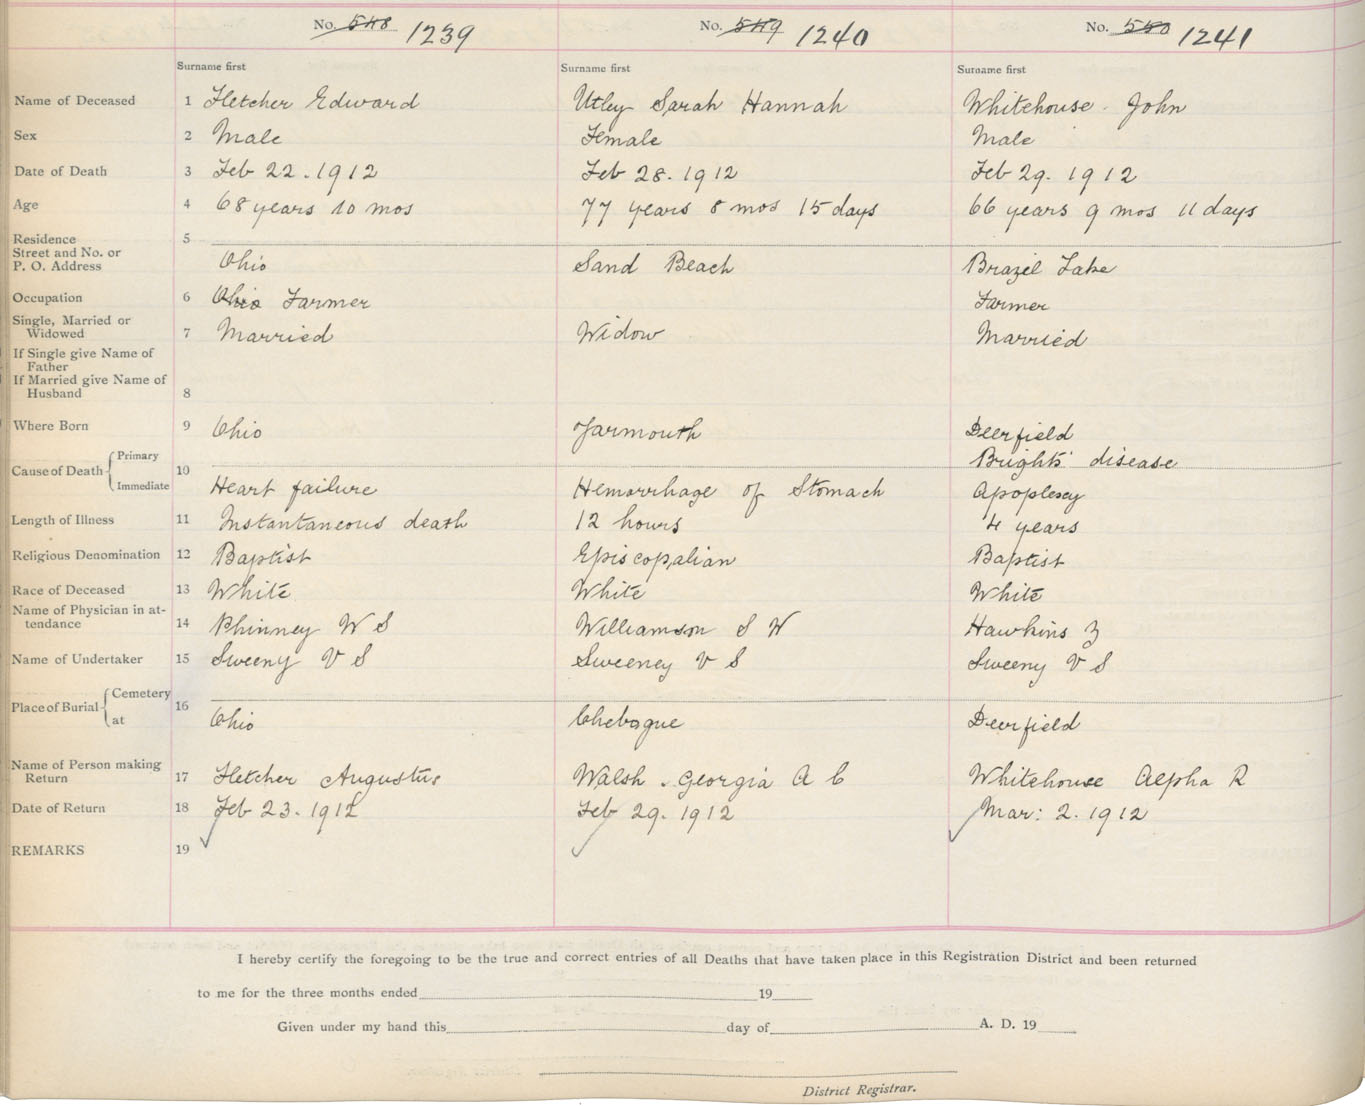 No. 548 1239 No. 549 1240 No. 550 1241
Surname first Surname first Surname first
Name of Deceased 1 Fletcher Edward Utley Sarah Hannah Whitehouse John
Sex 2 Male Female Male
Date of Death 3 Feb 22. 1912 Feb 28. 1912 Feb 29. 1912
Age 4 68 years 10 mos 77 years 8 mos 15 days 66 years 9 mos 11 days
Residence 5
Street and No. or
P. O. Address Ohio Sand Beach Brazil Lake
Occupation 6 Ohio Farmer Farmer
Single, Married or
Widowed 7 Married Widow Married
If Single give Name of
Father
If Married give Name of
Husband 8
Where Born 9 Ohio Yarmouth Deerfield
Cause of Death Primary 10 Brights' disease
Immediate Heart failure Hemorrhage of Stomach Apoplexy
Length of Illness 11 Instantaneous death 12 hours 4 years
Religious Denomination 12 Baptist Episcopalian Baptist
Race of Deceased 13 White White White
Name of Physician in at-
tendance 14 Phinney W S Williamson S W Hawkins Z
Name of Undertaker 15 Sweeny V S Sweeney V S Sweeny V S
Place of Burial Cemetery 16
at Ohio Chebogue Deerfield
Name of Person making
Return 17 Fletcher Augustus Walsh. Georgia A C Whitehouse Alpha R
Date of Return 18 Feb 23. 1912 Feb 29. 1912 Mar: 2. 1912
REMARKS 19
I hereby certify the foregoing to be the true and correct entries of all Deaths that have taken place in this Registration District and been returned
to me for the three months ended 19
Given under my hand this day of A. D. 19
District Registrar.